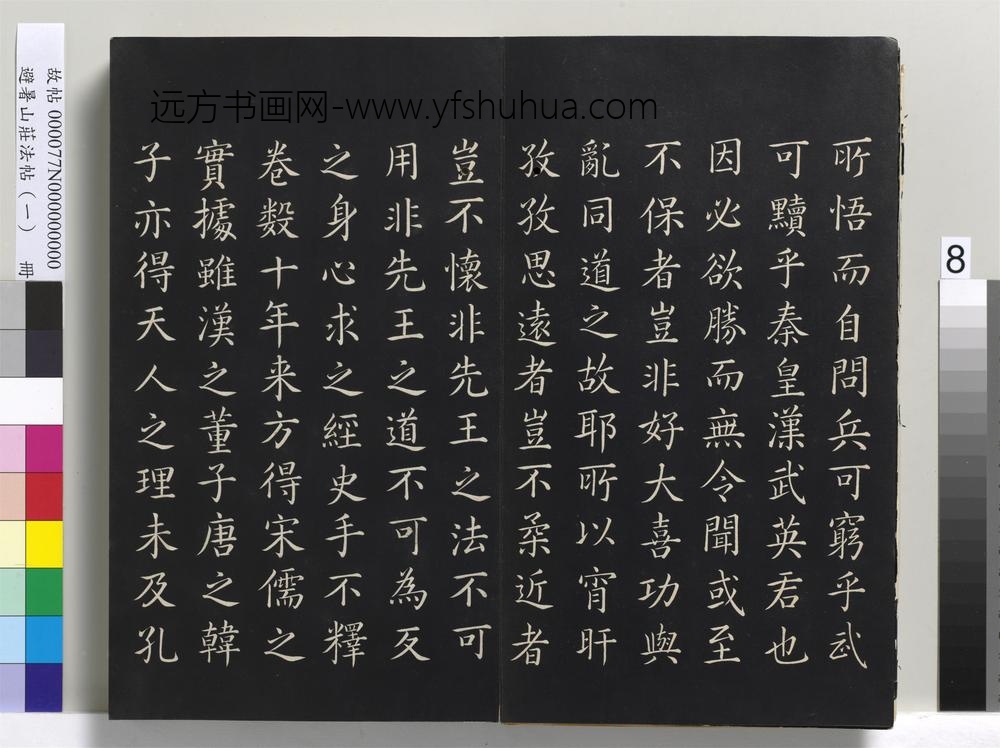 远方书画网-www.yfshuhua.com
所悟而自問兵可窮乎武
可黷乎秦皇漢武英君也
因必欲勝而無令聞或至
不保者豈非好大喜功與
亂同道之故耶所以宵旰
孜孜思遠者豈不柔近者
豈不懷非先王之法不可
用非先王之道不可為反
之身心求之經史手不釋
卷數十年来方得宋儒之
實據雖漢之董子唐之韓
子亦得天人之理未及孔
故帖 000077N000000000
避暑山莊法帖（一） 冊
8